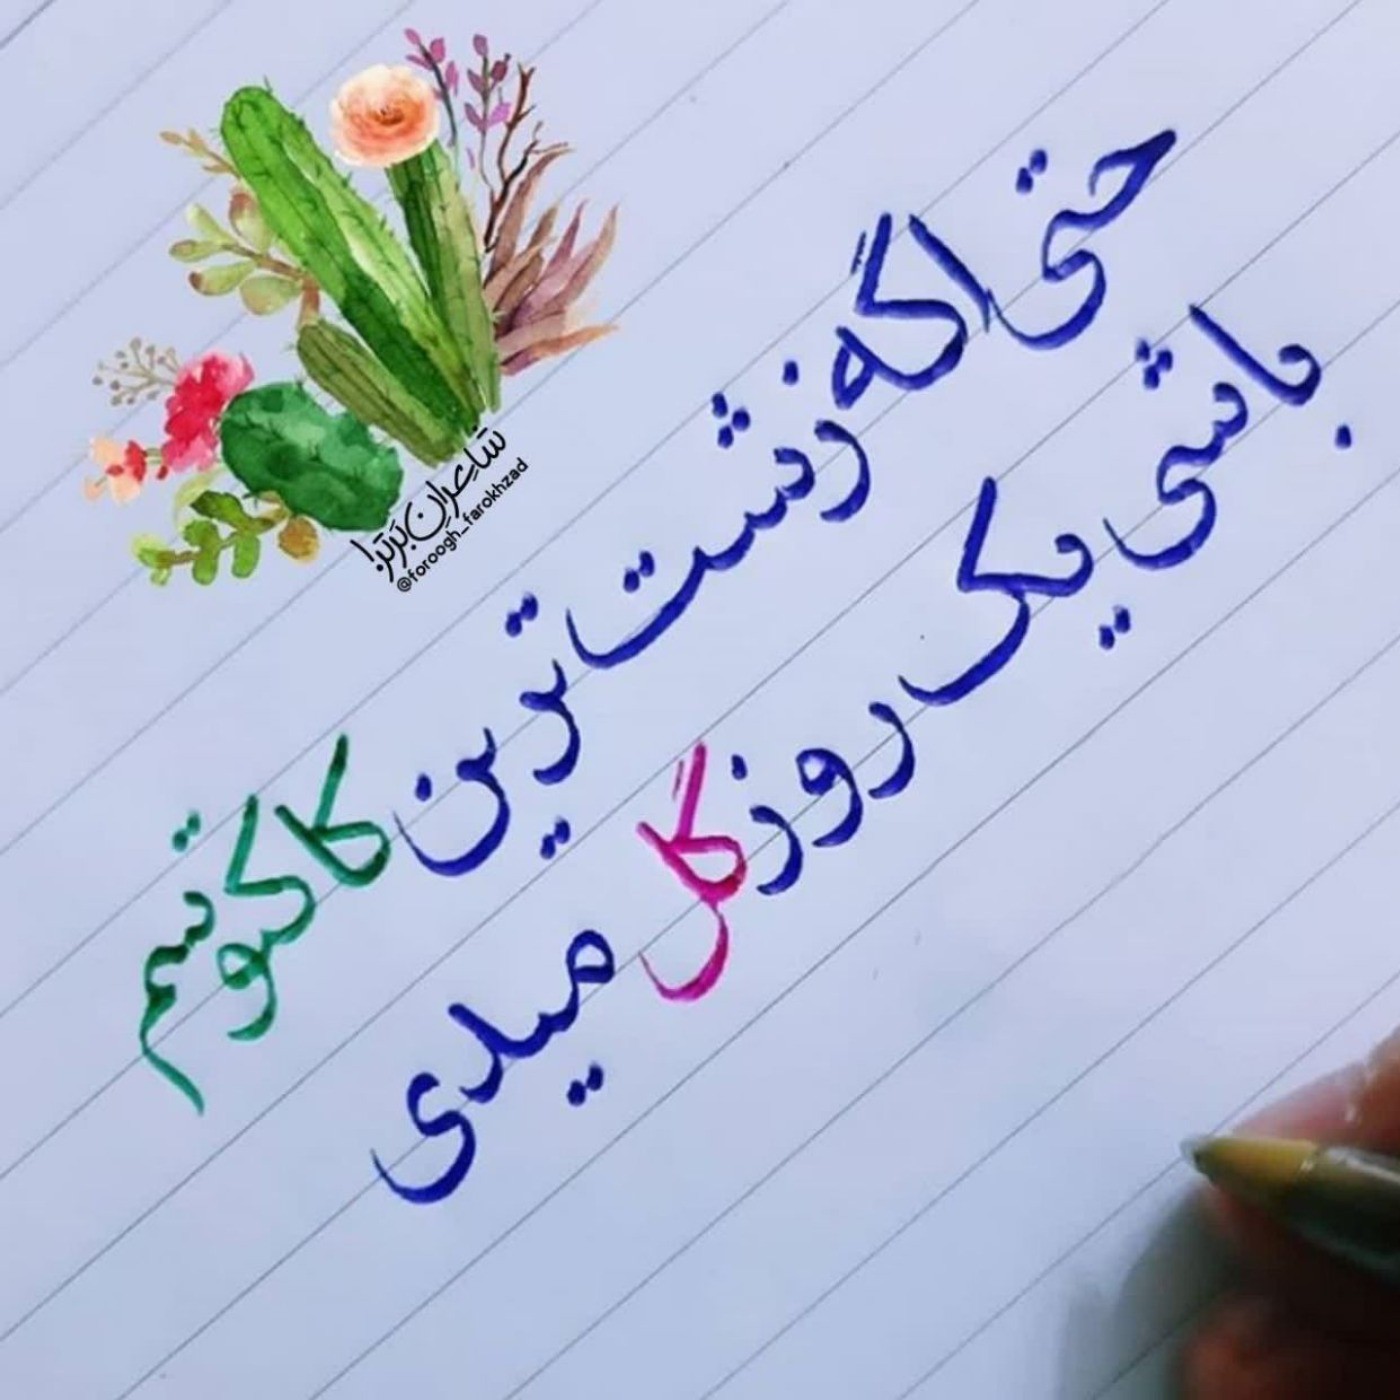 حتی اگه زشت ترین کاکتوسم
باشی یک روز گل میدی
شاعران برتر!
@foroogh_farokhzad